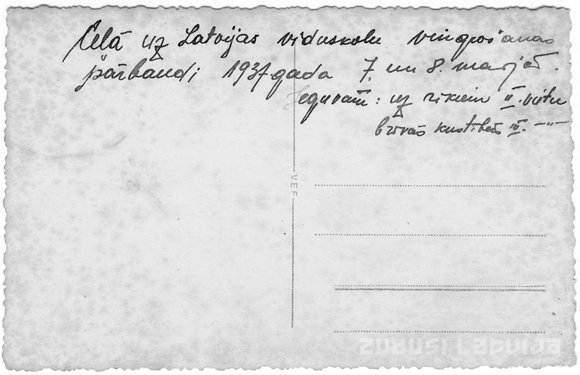 Ceļā uz Latvijas vidusskolu vingrošanas
pārbaudi 1937 gada 7. un 8. maijā.
Ieguvām: uz rīkiem II. vietu
brīvās kustībās IV. —"—
VEF
ZUDUSI LATVIJA